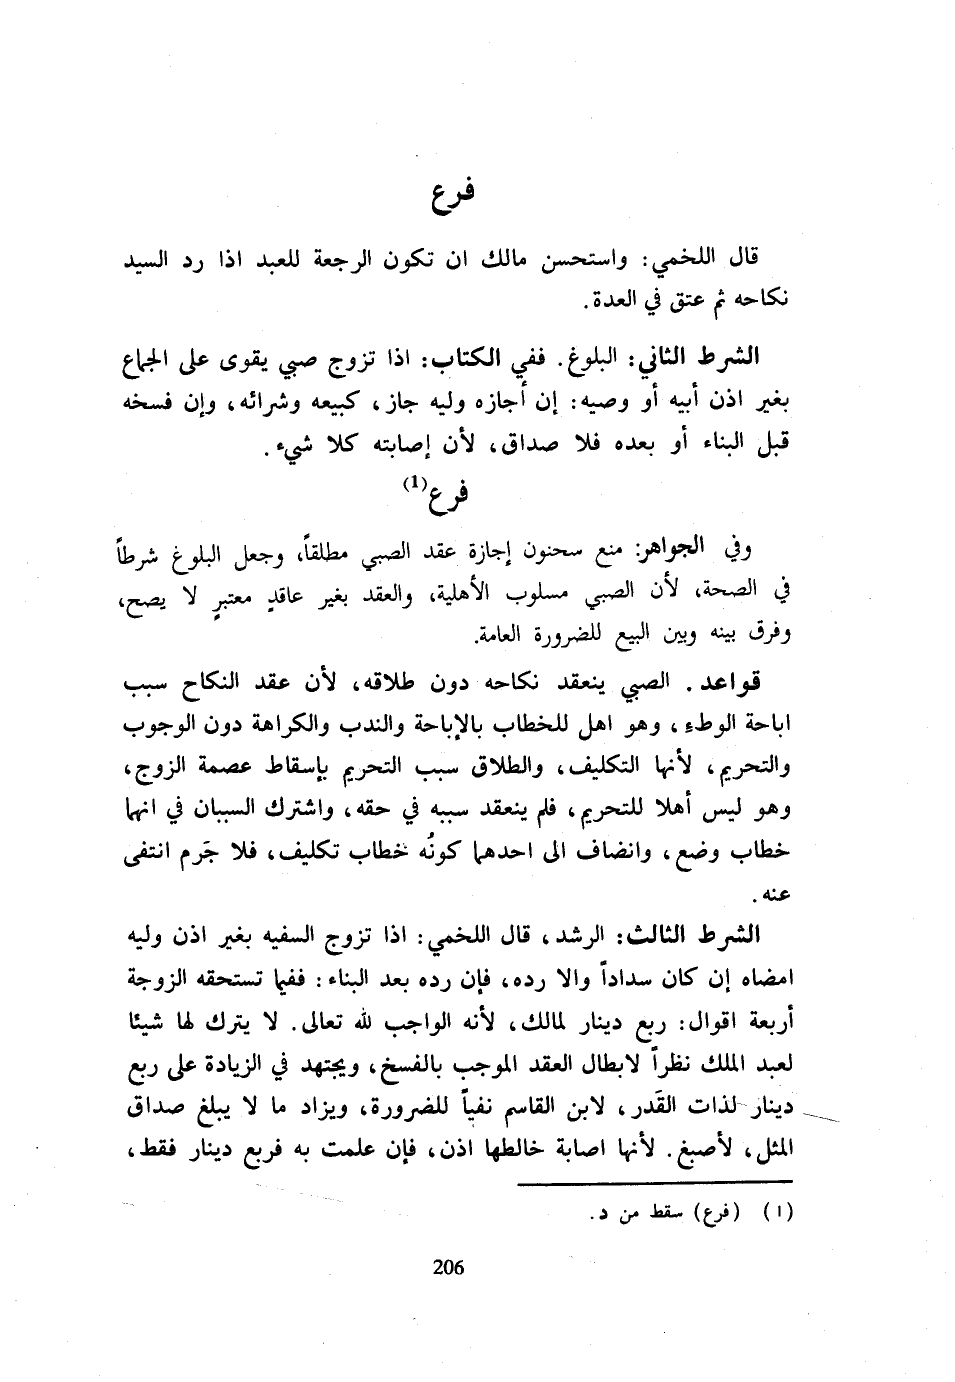 فرع
قال اللخمي: واستحسن مالك ان تكون الرجعة للعبد اذا رد السيد
نكاحه ثم عتق في العدة.
الشرط الثاني: البلوغ. ففي الكتاب: اذا تزوج صبي يقوى على الجماع
بغير اذن أبيه أو وصيه: إن أجازه وليه جاز، كبيعه وشرائه، وإن فسخه
قبل البناء أو بعده فلا صداق، لأن إصابته كلا شيء.
فرع(1)
وفي الجواهر: منع سحنون إجازة عقد الصبي مطلقاً، وجعل البلوغ شرطاً
في الصحة، لأن الصبي مسلوب الأهلية، والعقد بغير عاقدٍ معتبرٍ لا يصح،
وفرق بينه وبين البيع للضرورة العامة.
قواعد. الصبي ينعقد نكاحه دون طلاقه، لأن عقد النكاح سبب
اباحة الوطء، وهو اهل للخطاب بالإباحة والندب والكراهة دون الوجوب
والتحريم، لأنها التكليف، والطلاق سبب التحريم بإسقاط عصمة الزوج،
وهو ليس أهلا للتحريم، فلم ينعقد سببه في حقه، واشترك السببان في انهما
خطاب وضع، وانضاف الى احدهما كونُه خطاب تكليف، فلا جَرم انتفى
عنه.
الشرط الثالث: الرشد، قال اللخمي: اذا تزوج السفيه بغير اذن وليه
امضاه إن كان سداداً والا رده، فإن رده بعد البناء: ففيما تستحقه الزوجة
أربعة اقوال: ربع دينار لمالك، لأنه الواجب لله تعالى. لا يترك لها شيئا
لعبد الملك نظراً لابطال العقد الموجب بالفسخ، ويجتهد في الزيادة على ربع
دينار لذات القَدر، لابن القاسم نفياً للضرورة، ويزاد ما لا يبلغ صداق
المثل، لأصبغ. لأنها اصابة خالطها اذن، فإن علمت به فربع دينار فقط،
(١) (فرع) سقط من د.
206